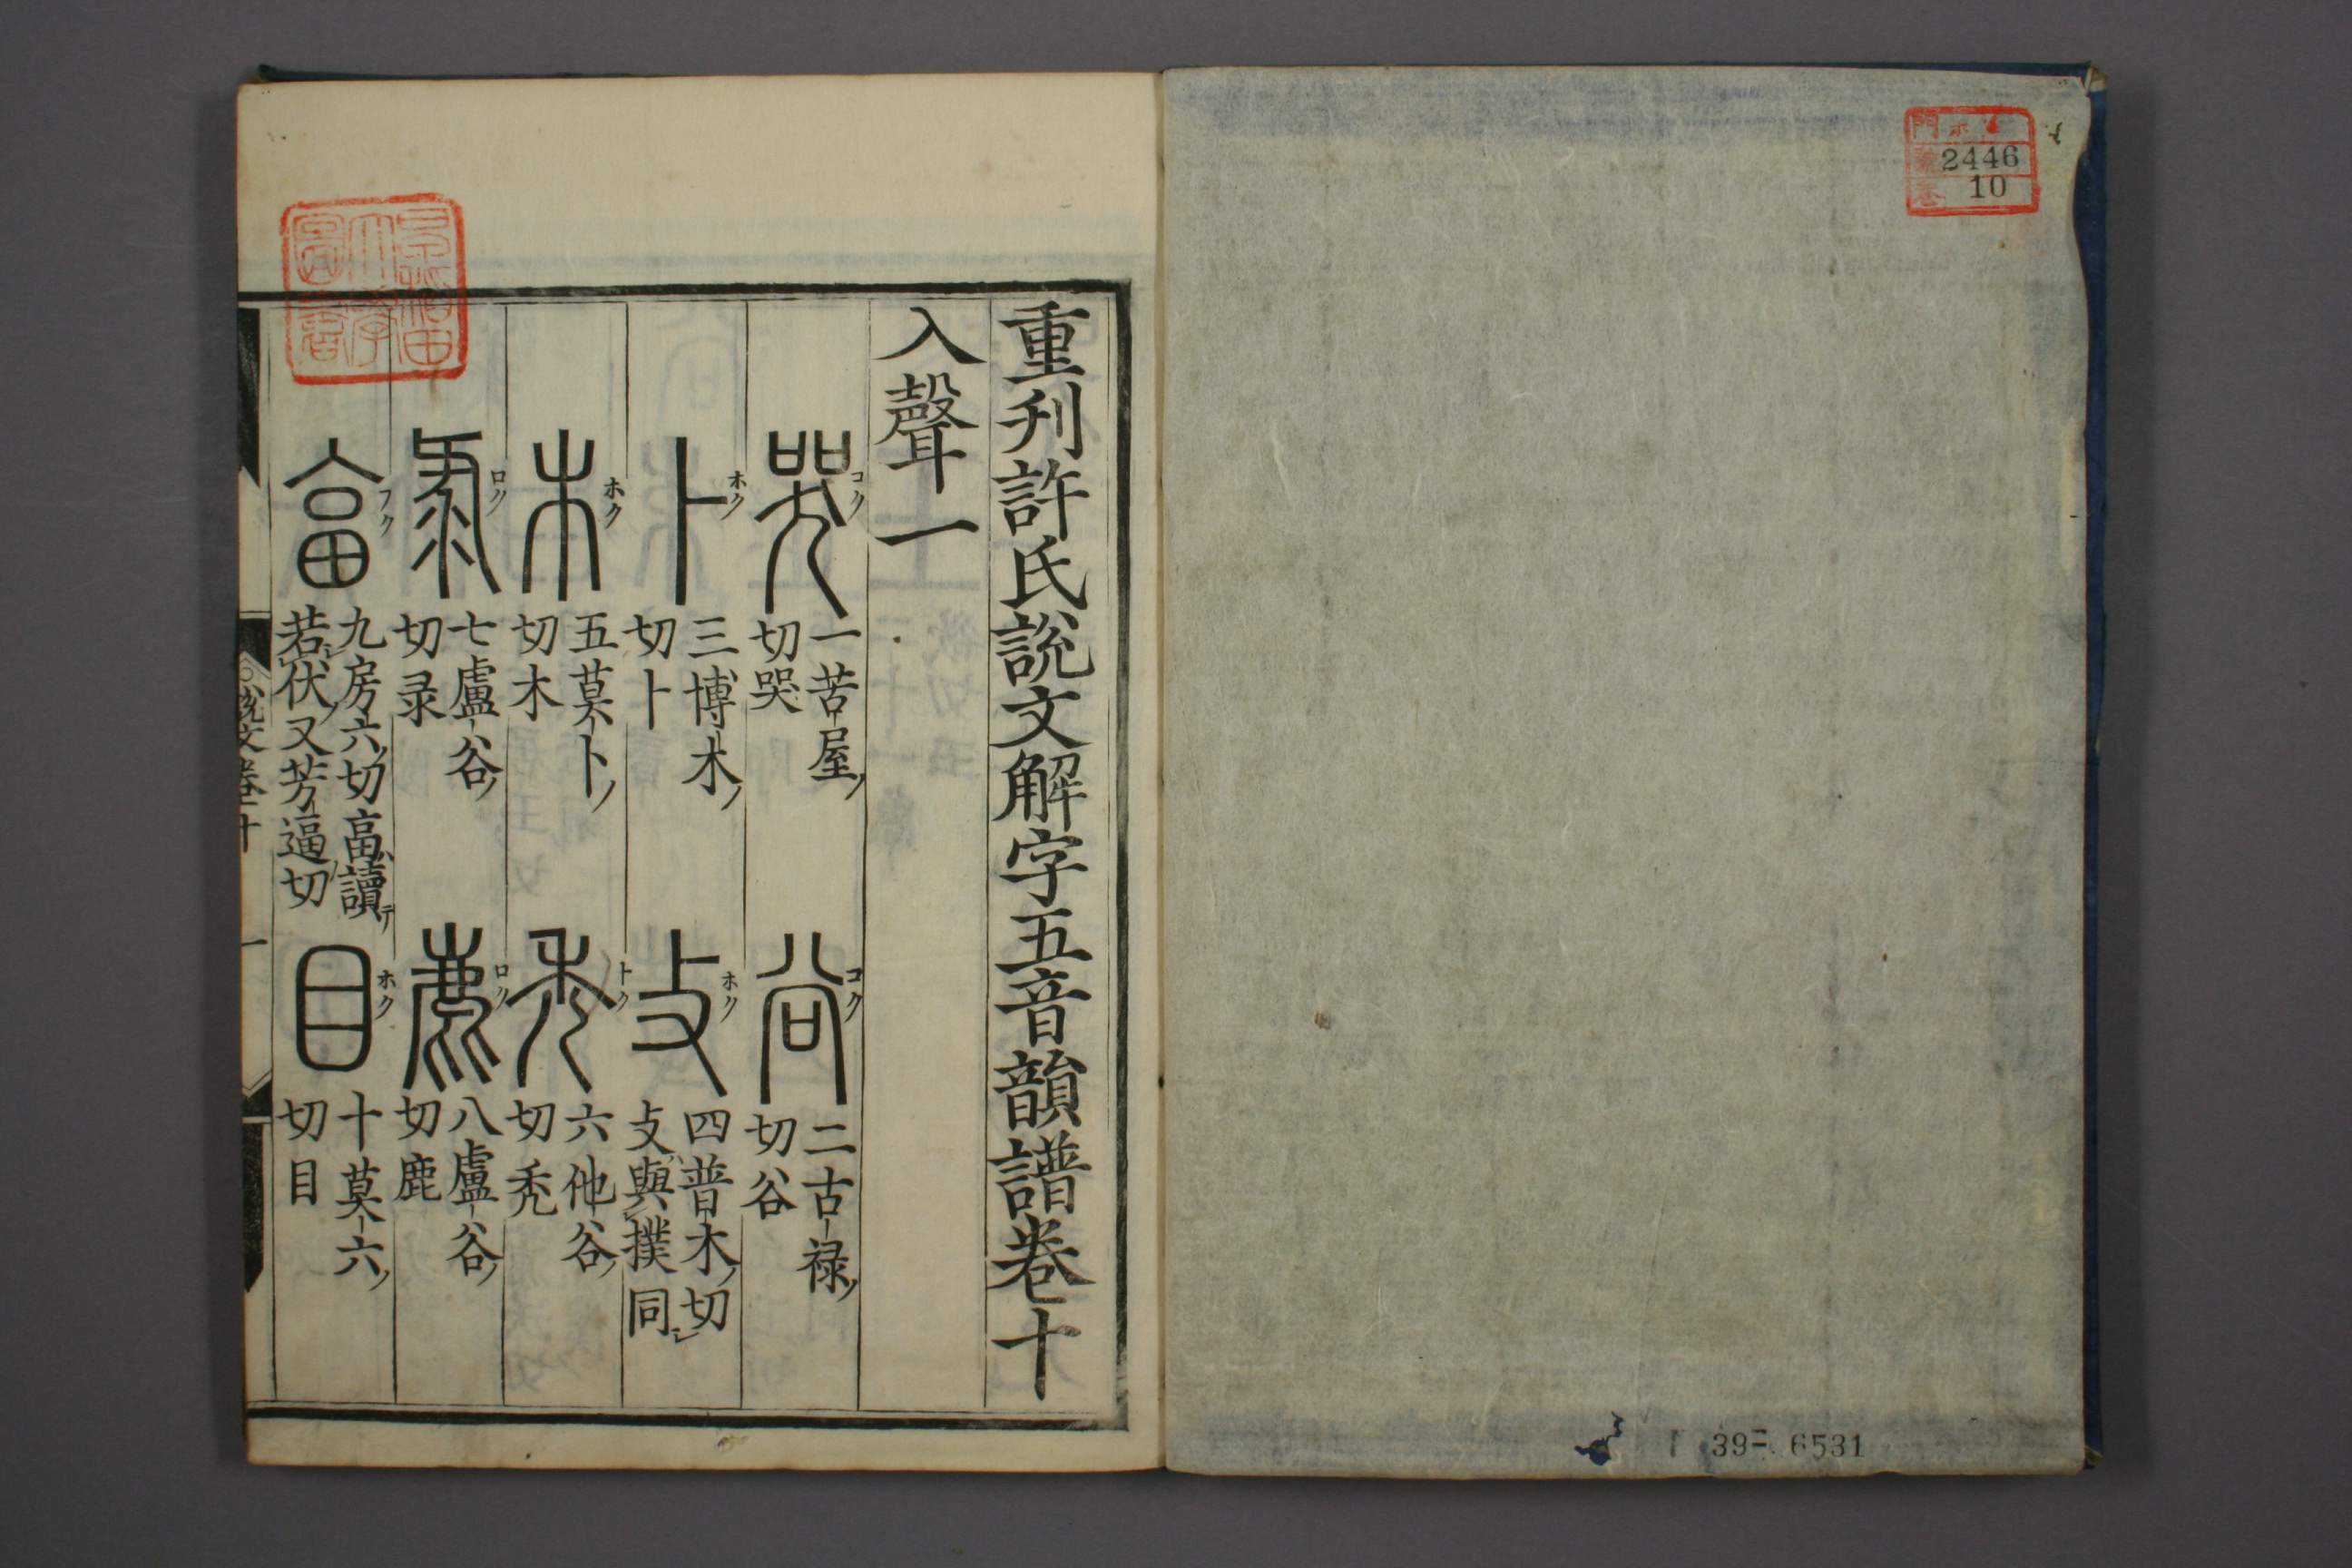 門 ホ
號 2446
卷 10
重刋許氏說文解字五音韻譜卷十
入聲一
哭 コク
一苦屋
切哭
谷 コク
二古禄
切谷
卜 ホク
三博木
切卜
攴 ホク
四普木切
攴與撲同
木 ホク
五莫卜
切木
禿 トク
六他谷
切禿
彔 ロク
七盧谷
切彔
鹿 ロク
八盧谷
切鹿
畐 フク
九房六切畐讀
若伏又芳逼切
目 ホク
十莫六
切目
說文卷十
一
早稻田
大學
圖書